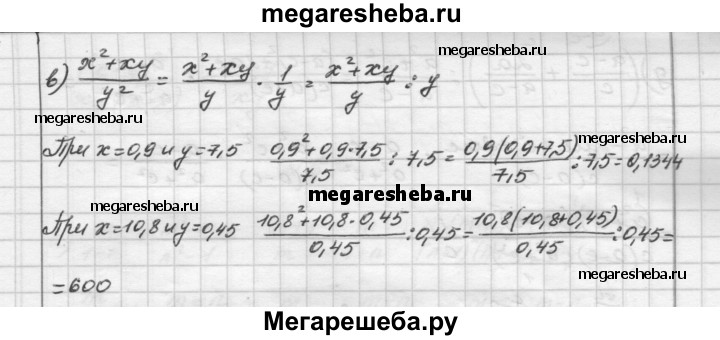 megaresheba.ru
в) (x²+xy)/y² = (x²+xy)/y · 1/y = (x²+xy)/y : y
megaresheba.ru
megaresheba.ru
При x=0,9 и y=7,5 (0,9²+0,9·7,5)/7,5 : 7,5 = (0,9(0,9+7,5))/7,5 : 7,5 = 0,1344
megaresheba.ru
megaresheba.ru
megaresheba.ru
При x=10,8 и y=0,45 (10,8²+10,8·0,45)/0,45 : 0,45 = (10,8(10,8+0,45))/0,45 : 0,45 =
megaresheba.ru
= 600
Мегарешеба.ру